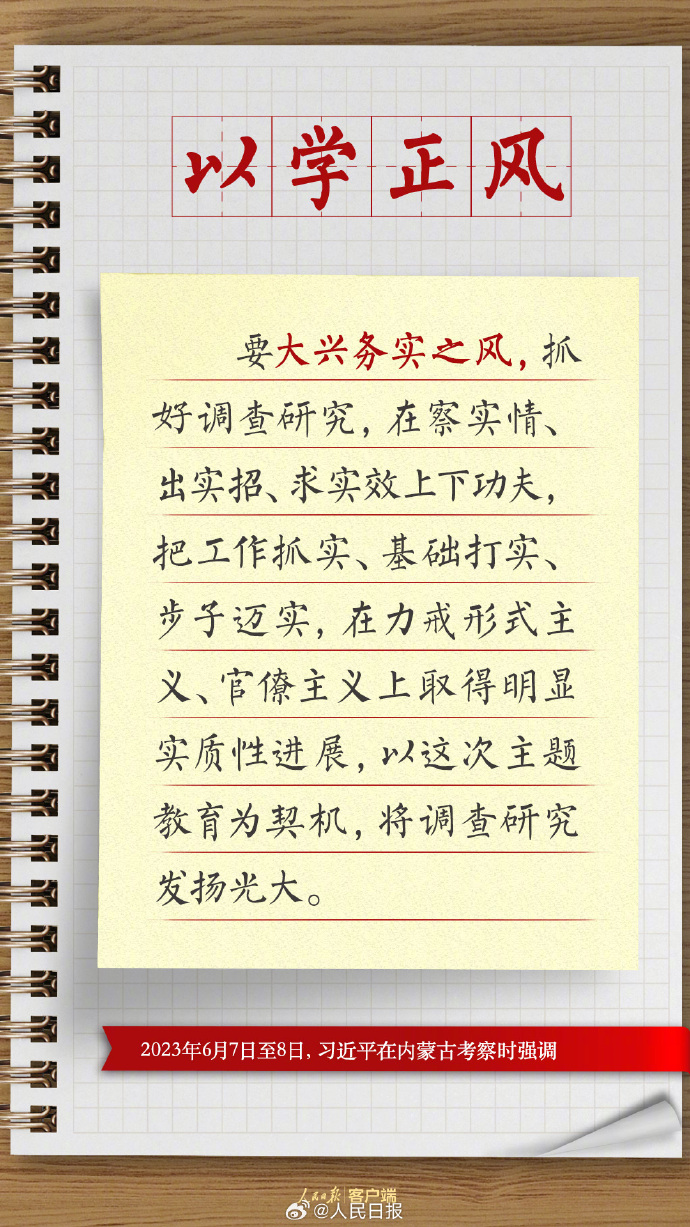 以学正风
要大兴务实之风，抓
好调查研究，在察实情、
出实招、求实效上下功夫，
把工作抓实、基础打实、
步子迈实，在力戒形式主
义、官僚主义上取得明显
实质性进展，以这次主题
教育为契机，将调查研究
发扬光大。
2023年6月7日至8日，习近平在内蒙古考察时强调
人民日报 客户端
@人民日报